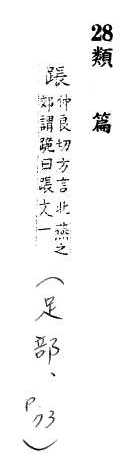 28類篇
踞仲良切方言北燕之
郊謂跪曰踞文一
(足部、P.73)